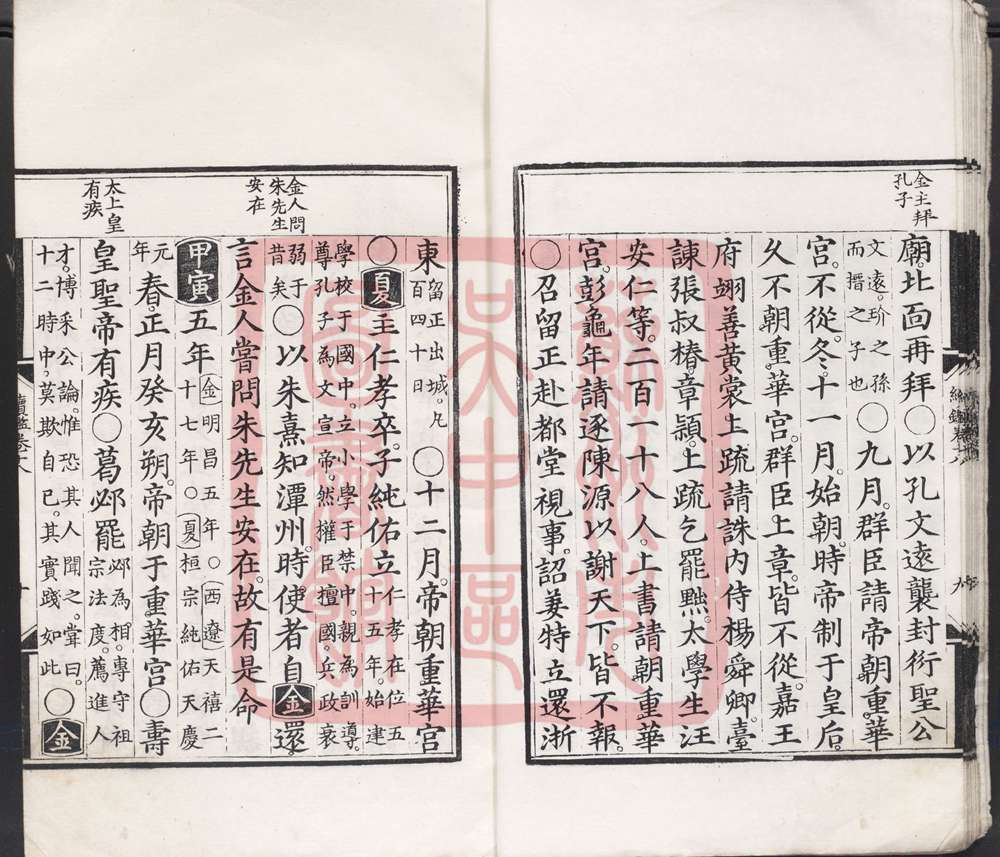 金主拜
孔子
廟。北面再拜〇以孔文遠襲封衍聖公
文遠。玠之孫
而搢之子也
〇九月。群臣請帝朝重華
宮。不從。冬。十一月。始朝。時帝制于皇后。
久不朝重華宮。群臣上章。皆不從。嘉王
府翊善黃裳上疏請誅內侍楊舜卿。臺
諫張叔椿。章潁。上疏乞罷黜。太學生汪
安仁等。二百一十八人。上書請朝重華
宮。彭龜年請逐陳源以謝天下。皆不報。
〇召留正赴都堂視事。詔姜特立還浙
東
留正出城。凡
百四十日
〇十二月。帝朝重華宮
〇夏主仁孝卒。子純佑立
仁孝在位五
十五年。始建
學校于國中。立小學于禁中。親為訓導。
尊孔子為文宣帝。然權臣擅國。兵政衰
弱于
昔矣
〇以朱熹知潭州。時使者自金還。
金人問
朱先生
安在
言金人嘗問朱先生安在。故有是命
甲寅五年
金明昌五年〇西遼天禧二
十七年〇夏桓宗純佑天慶
元
年
春。正月癸亥朔。帝朝于重華宮〇壽
太上皇
有疾
皇聖帝有疾〇葛邲罷
邲為相。專守祖
宗法度。薦進人
才。博采公論。惟恐其人聞之。嘗曰。
十二時中。莫欺自己。其實踐如此
〇金